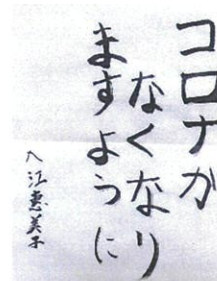 コロナが
なくなり
ますように
入江恵美子